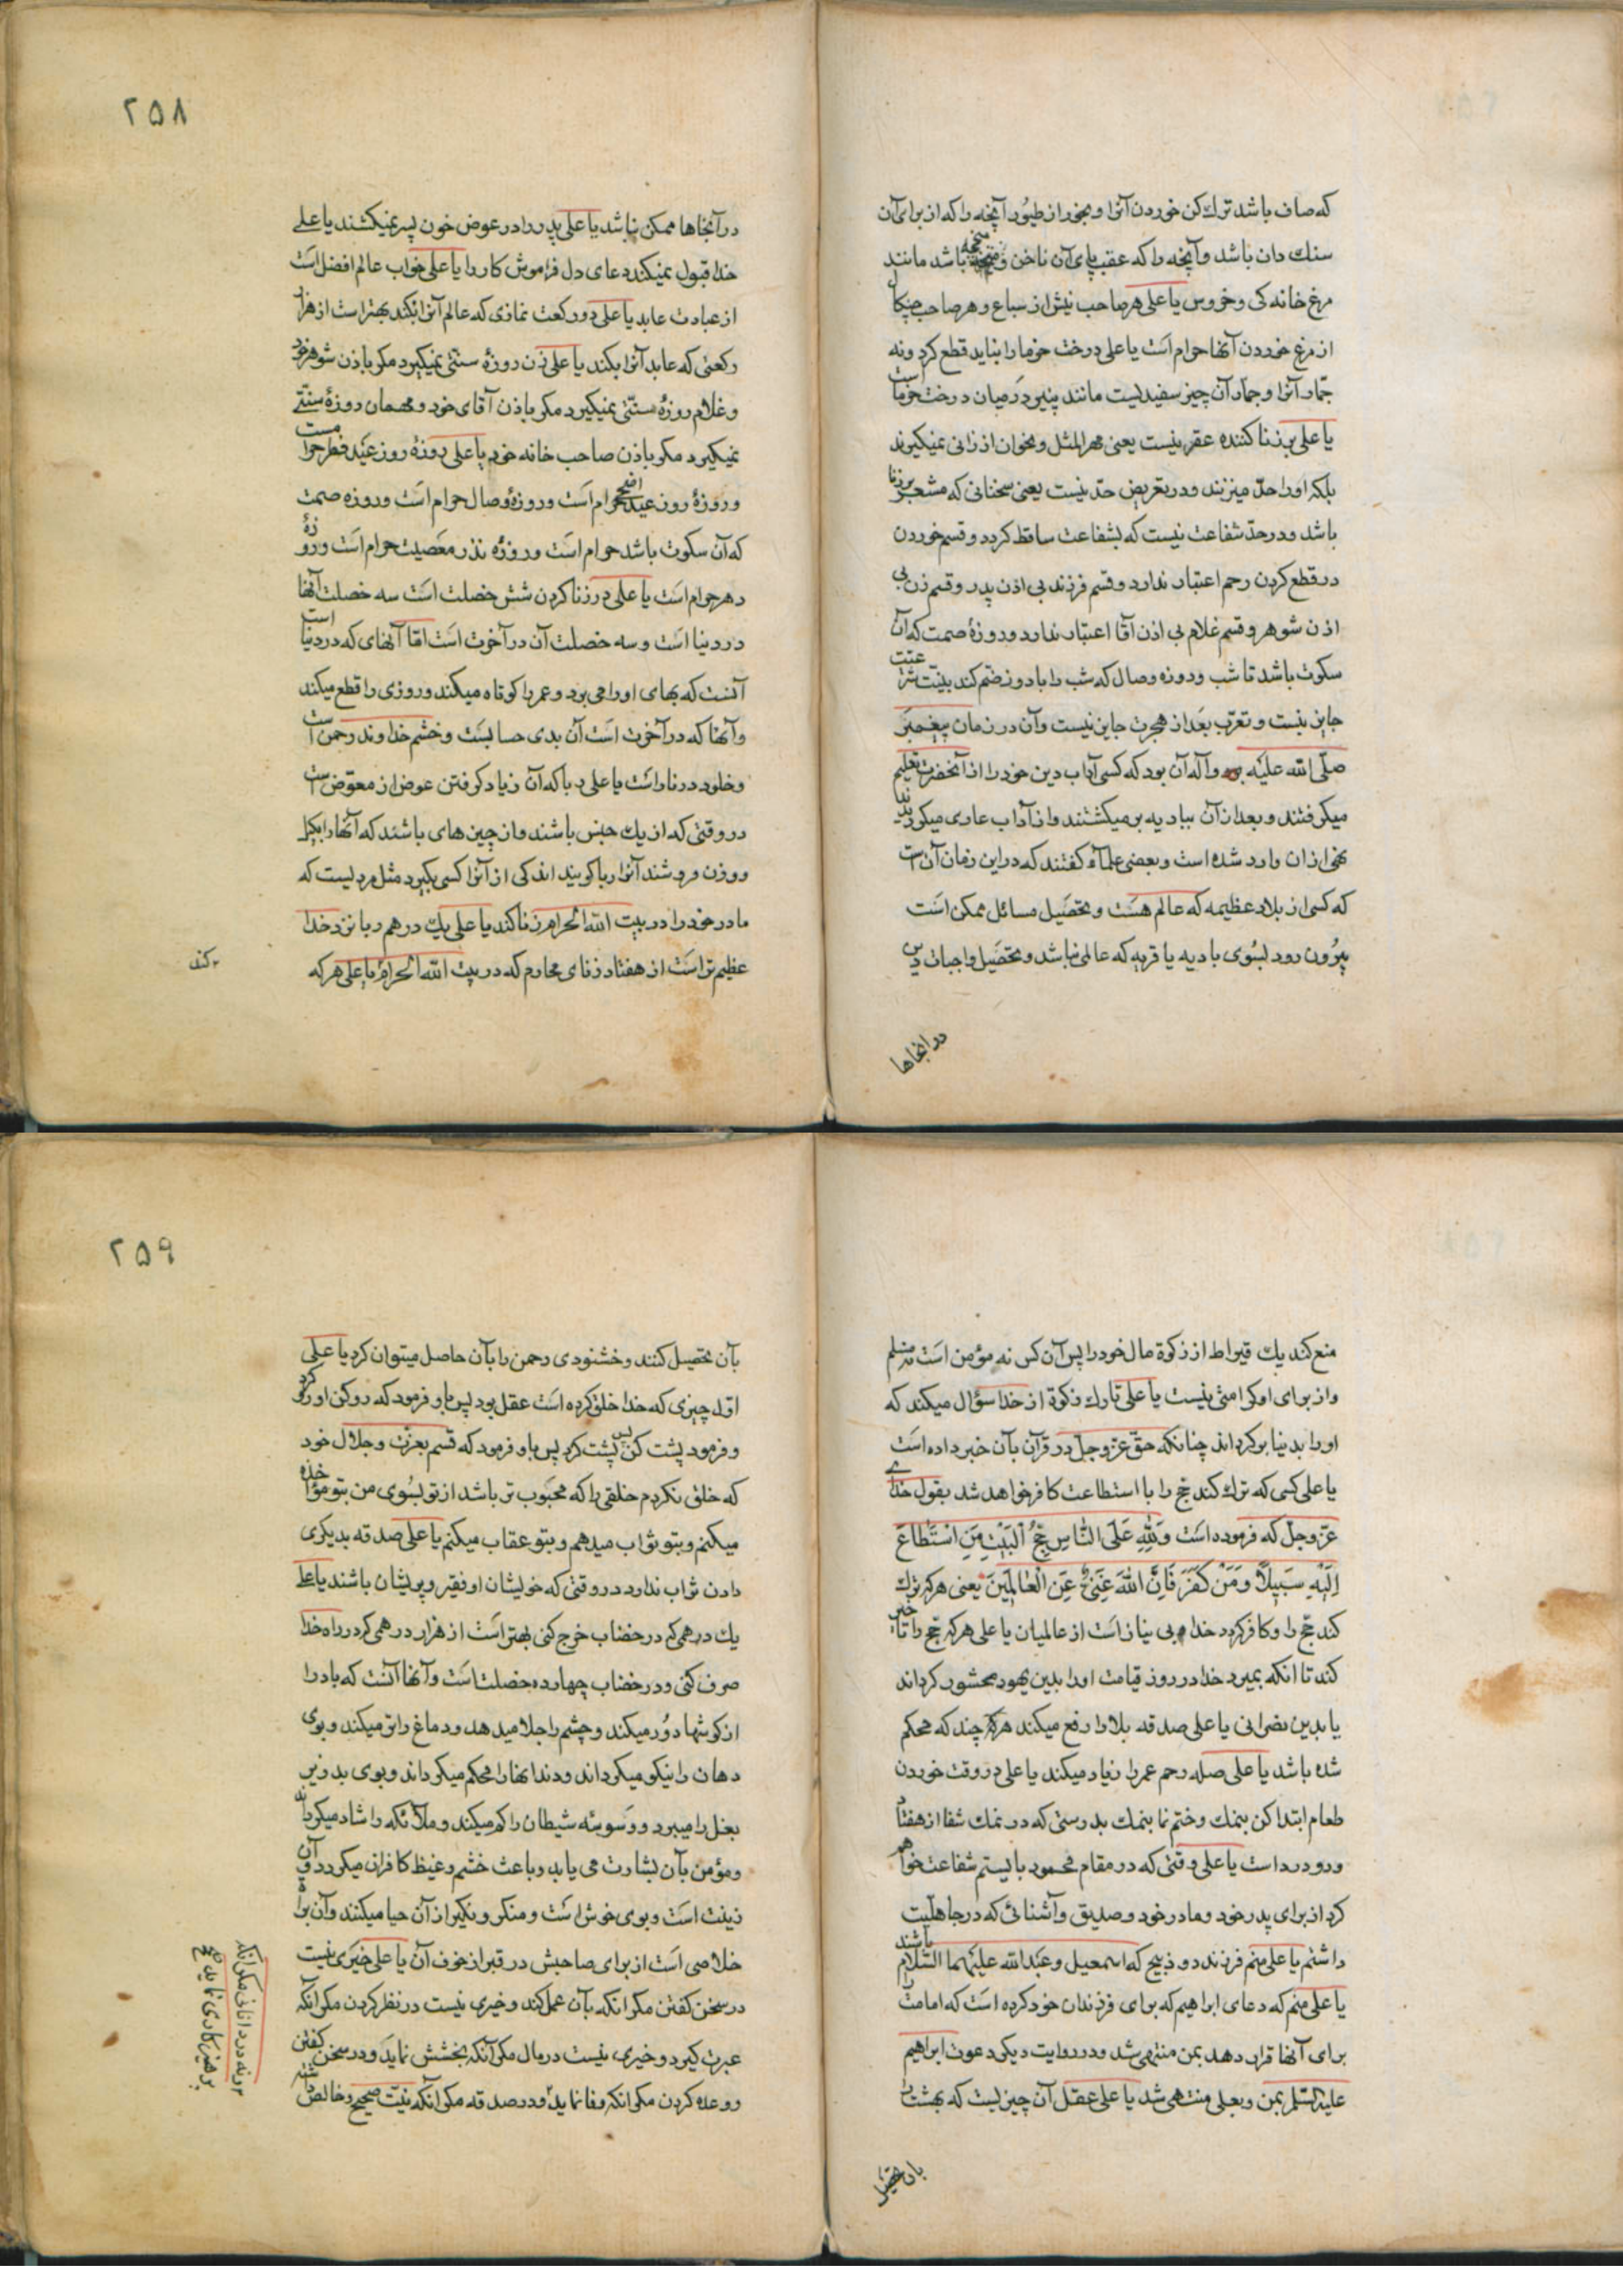 که صاف باشد ترك كن خوردن آنرا و بخور از طیور آنچه را که از برای آن
سنك دان باشد و آنچه را که عقب پای آن ناخن و باشد مانند
مرغ خانه کی و خروس یا علی هر صاحب نیش از سباع و هر صاحب چنکال
از مرغ خوردن آنها حرام است یا علی درخت خرما را نباید قطع کرد و نه
جمار آنرا و جمار آن چیز سفیدیست مانند پنیر در میان درخت خرما است
یا علی بر زنا کننده عقر نیست یعنی مهر المثل و نحو آن از زانی نمیکیرند
بلکه او را حد میزنند و در تعریض حد نیست یعنی سخنانی که مشعر بر زنا
باشد و در حد شفاعت نیست که بشفاعت ساقط کردد و قسم خوردن
در قطع کردن رحم اعتبار ندارد و قسم فرزند بی اذن پدر و قسم زن بی
اذن شوهر و قسم غلام بی اذن آقا اعتبار ندارد و روزهٔ صمت که آن
سکوت باشد تا شب و روزه وصال که شب را با روز ضم کند بنیت شرعیت
جایز نیست و تعرّب بعد از هجرت جایز نیست و آن در زمان پیغمبر
صلّی الله علیه و آله آن بود که کسی آداب دین خود را از آنحضرت تعلیم
میکرفتند و بعد از آن ببادیه بر میکشتند و از آداب عاری میکردیدند
نهی از ان وارد شده است و بعضی علماء کفتند که در این زمان آن است
که کسی از بلاد عظیمه که عالم هست و تحصیل مسائل ممکن است
بیرون رود بسوی بادیه یا قریه که عالمی نباشد و تحصیل واجبات دین
در انجاها
۲۵۸
در آنجاها ممکن نباشد یا علی پدر را در عوض خون پسر نمیکشند یا علی
خدا قبول نمیکند دعای دل فراموش کار را یا علی خواب عالم افضل است
از عبادت عابد یا علی دو رکعت نمازی که عالم آنرا بکند بهتر است از هزار
رکعتی که عابد آنرا بکند یا علی زن روزهٔ سنتی نمیکیرد مکر باذن شوهر خود
و غلام روزهٔ سنتی نمیکیرد مکر باذن آقای خود و مهمان روزهٔ سنتی
نمیکیرد مکر باذن صاحب خانه خود یا علی روزهٔ روز عید فطر حرامست
و روزهٔ روز عید اضحی حرام است و روزهٔ وصال حرام است و روزه صمت
که آن سکوت باشد حرام است و روزه نذر معصیت حرام است و روزهٔ
دهر حرام است یا علی در زنا کردن شش خصلت است سه خصلت آنها
در دنیا است و سه خصلت آن در آخرت است امّا آنهای که در دنیا است
آنست که بهای او را می برد و عمر را کوتاه میکند و روزی را قطع میکند
و آنها که در آخرت است آن بدی حسابست و خشم خداوند رحمن است
و خلود در نار است یا علی ربا که آن زیاد کرفتن عوض از معوّض است
در وقتی که از یك جنس باشند و از چیزهای باشند که آنها را بکیل
و وزن فروشند آنرا ربا کویند اندکی از آنرا کسی بکیرد مثل مردیست که
مادر خود را در بیت الله الحرام زنا کند یا علی یك درهم ربا نزد خدا
عظیم تر است از هفتاد زنای محارم که در بیت الله الحرام یا علی هر که
کند
منع کند یك قیراط از زکوة مال خود را پس آن کس نه مؤمن است نه مسلم
و از برای او کرامتی نیست یا علی تارك زکوة از خدا سؤال میکند که
او را بدنیا بر کرداند چنانکه حقّ عزّ وجلّ در قرآن بآن خبر داده است
یا علی کسی که ترك کند حجّ را با استطاعت کافر خواهد شد بقول خدای
عزّ وجلّ که فرموده است وَلِلّهِ عَلَى النَّاسِ حِجُّ الْبَيْتِ مَنِ اسْتَطَاعَ
اِلَيْهِ سَبِيلًا وَمَنْ كَفَرَ فَاِنَّ اللهَ غَنِيٌّ عَنِ الْعَالَمِينَ یعنی هر که ترك
کند حجّ را و کافر کردد خدا بی نیاز است از عالمیان یا علی هر که حجّ را تاخیر
کند تا انکه بمیرد خدا در روز قیامت او را بدین یهود محشور کرداند
یا بدین نصرانی یا علی صدقه بلا را رفع میکند هر چند که محکم
شده باشد یا علی صله رحم عمر را زیاد میکند یا علی در وقت خوردن
طعام ابتدا کن بنمك و ختم نما بنمك بدرستی که در نمك شفا از هفتاد
و دو درد است یا علی وقتی که در مقام محمود بایستم شفاعت خواهم
کرد از برای پدر خود و مادر خود و صدیق و آشنائی که در جاهلیت
داشتم یا علی منم فرزند دو ذبیح که اسمعیل و عبدالله علیهما السّلام باشند
یا علی منم که دعای ابراهیم که برای فرزندان خود کرده است که امامت را
برای آنها قرار دهد بمن منتهی شد و در روایت دیکر دعوت ابراهیم
علیه السلم بمن و بعلی منتهی شد یا علی عقل آن چیزیست که بهشت را
بآن تحصیل
۲۵۹
بآن تحصیل کنند و خشنودی رحمن را بآن حاصل میتوان کرد یا علی
اوّل چیزی که خدا خلق کرده است عقل بود پس باو فرمود که رو کن او رو کرد
و فرمود پشت کن پس پشت کرد پس باو فرمود که قسم بعزّت و جلال خود
که خلق نکردم خلقی را که محبوب تر باشد از تو بسوی من بتو مؤاخذه
میکنم و بتو ثواب میدهم و بتو عقاب میکنم یا علی صدقه بدیکری
دادن ثواب ندارد در وقتی که خویشان او فقیر و پریشان باشند یا علی
یك درهمی که در خضاب خرج کنی بهتر است از هزار درهمی که در راه خدا
صرف کنی و در خضاب چهارده خصلت است و آنها آنست که باد را
از کوشها دور میکند و چشم را جلا میدهد و دماغ را تر میکند و بوی
دهان را نیکو میکرداند و دندانها را محکم میکرداند و بوی بد زیر
بغل را میبرد و وسوسهٔ شیطان را کم میکند و ملائکه را شاد میکرداند
و مؤمن بآن بشارت می یابد و باعث خشم و غیظ کافران میکردد و آن
زینت است و بوی خوش است و منکر و نکیر از آن حیا میکنند و آن براة
خلاصی است از برای صاحبش در قبر از خوف آن یا علی خیری نیست
در سخن کفتن مکر انکه بآن عمل کند و خیری نیست در نظر کردن مکر انکه
عبرت کیرد و خیری نیست در مال مکر آنکه بخشش نماید و در سخن کفتن
و وعده کردن مکر انکه وفا نماید و در صدقه مکر آنکه نیت صحیح و خالص
و نه در دانائی مکر آنکه
پرهیزکاری نماید